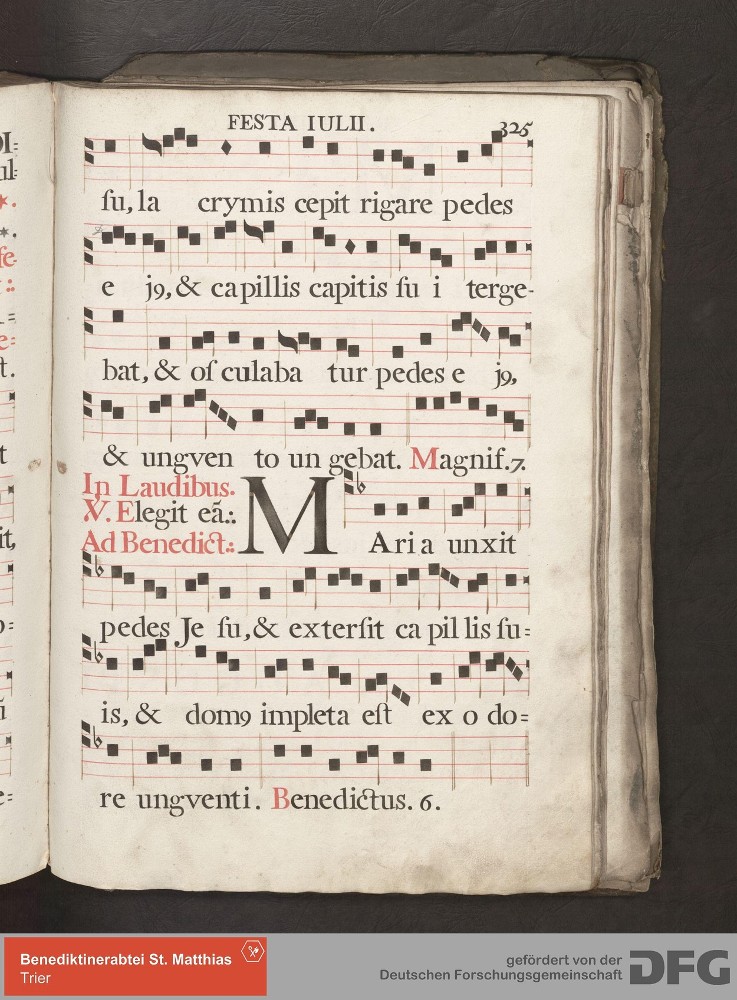 FESTA IULII.
325
ſu, la crymis cepit rigare pedes
e j9, & capillis capitis ſu i terge-
bat, & oſ culaba tur pedes e j9,
& ungven to un gebat. Magnif. 7.
In Laudibus.
V. Elegit eã.:
Ad Benedict.:
MAria unxit
pedes Je ſu, & exterſit ca pil lis ſu=
is, & dom9 impleta eſt ex o do=
re ungventi. Benedictus. 6.
Benediktinerabtei St. Matthias
Trier
gefördert von der
Deutschen Forschungsgemeinschaft
DFG